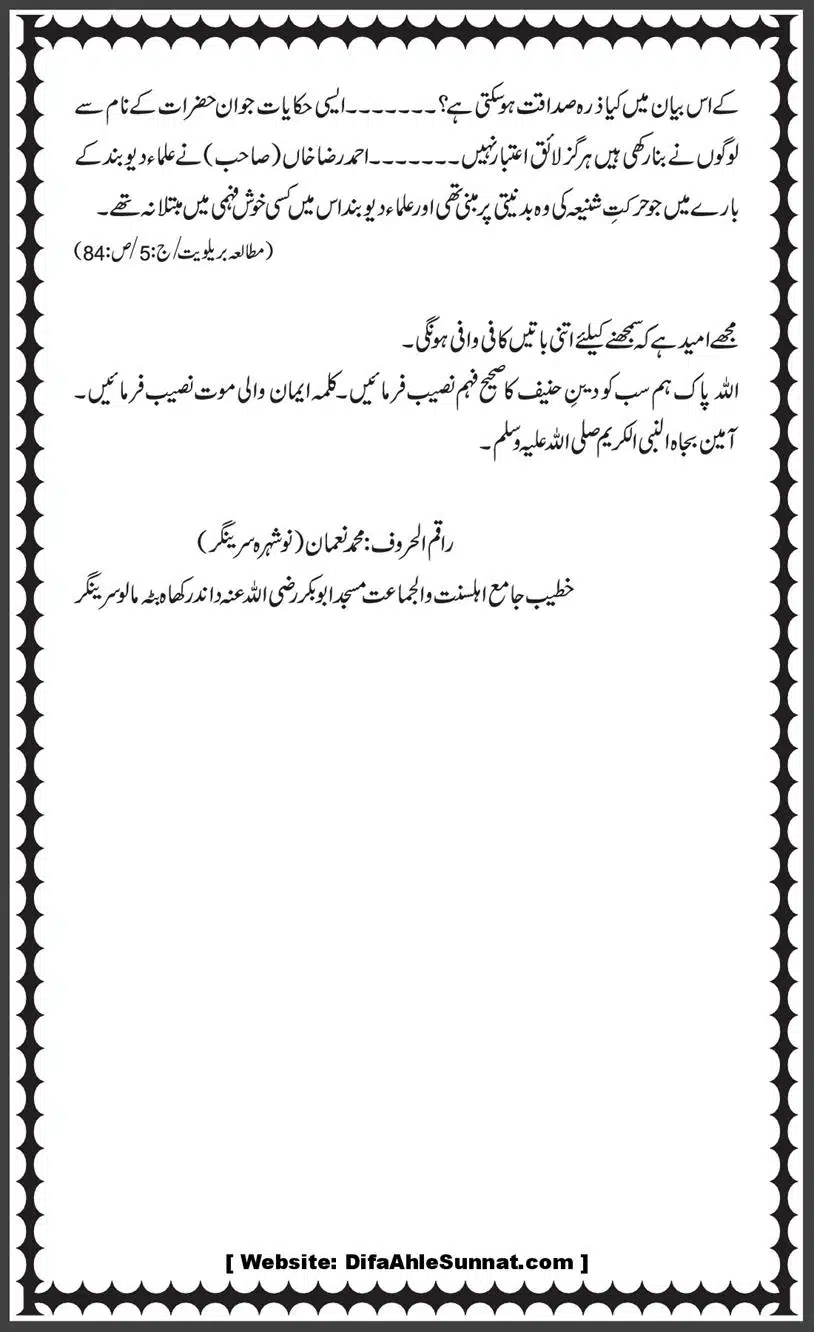 کے اس بیان میں کیا ذرہ صداقت ہوسکتی ہے؟۔۔۔۔۔۔۔ایسی حکایات جو ان حضرات کے نام سے
لوگوں نے بنا رکھی ہیں ہرگز لائق اعتبار نہیں۔۔۔۔۔۔۔احمد رضا خاں (صاحب) نے علماء دیوبند کے
بارے میں جو حرکتِ شنیعہ کی وہ بدنیتی پر مبنی تھی اور علماء دیوبند اس میں کسی خوش فہمی میں مبتلا نہ تھے۔
(مطالعہ بریلویت/ج:5/ص:84)
مجھے امید ہے کہ سمجھنے کیلئے اتنی باتیں کافی وافی ہونگی۔
اللہ پاک ہم سب کو دینِ حنیف کا صحیح فہم نصیب فرمائیں۔کلمہ ایمان والی موت نصیب فرمائیں۔
آمین بجاہ النبی الکریم صلی اللہ علیہ وسلم۔
راقم الحروف: محمد نعمان (نوشہرہ سرینگر)
خطیب جامع اہلسنت والجماعت مسجد ابوبکر رضی اللہ عنہ داندرکھاہ بٹہ مالو سرینگر
[ Website: DifaAhleSunnat.com ]